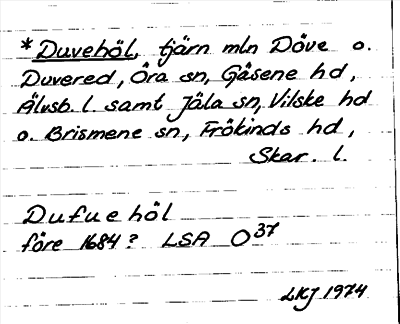 *Duvehöl, tjärn mln Döve o.
Duvered, Öra sn, Gäsene hd,
Älvsb. l. samt Jäla sn, Vilske hd
o. Brismene sn, Frökinds hd,
Skar. l.
Dufuehöl
före 1684? LSA O37
LKJ 1974